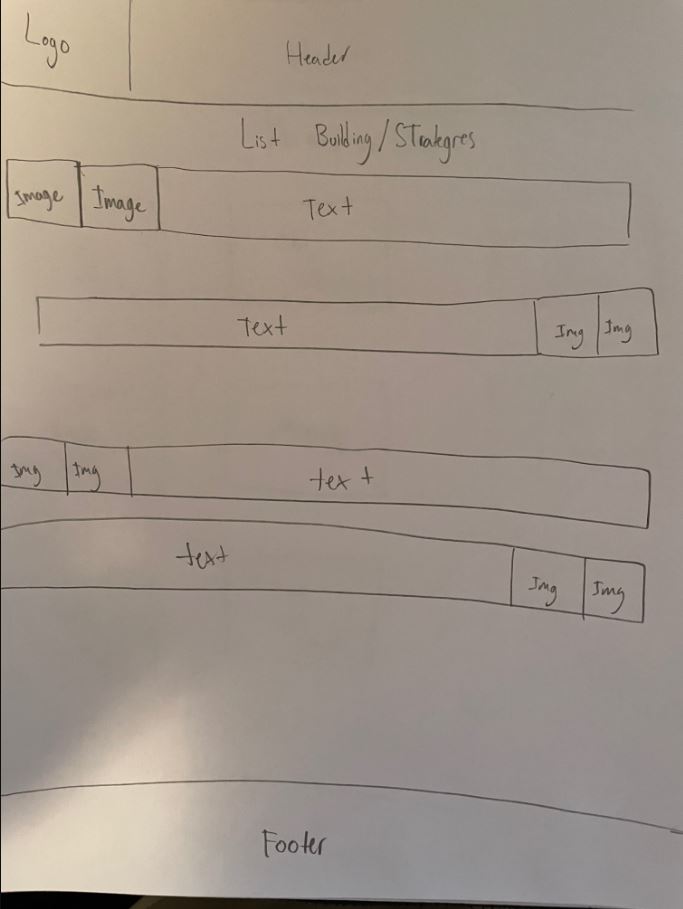 Logo
Header
List Building/Strategres
Image Image Text
Text Img Img
Img Img text
text Img Img
Footer